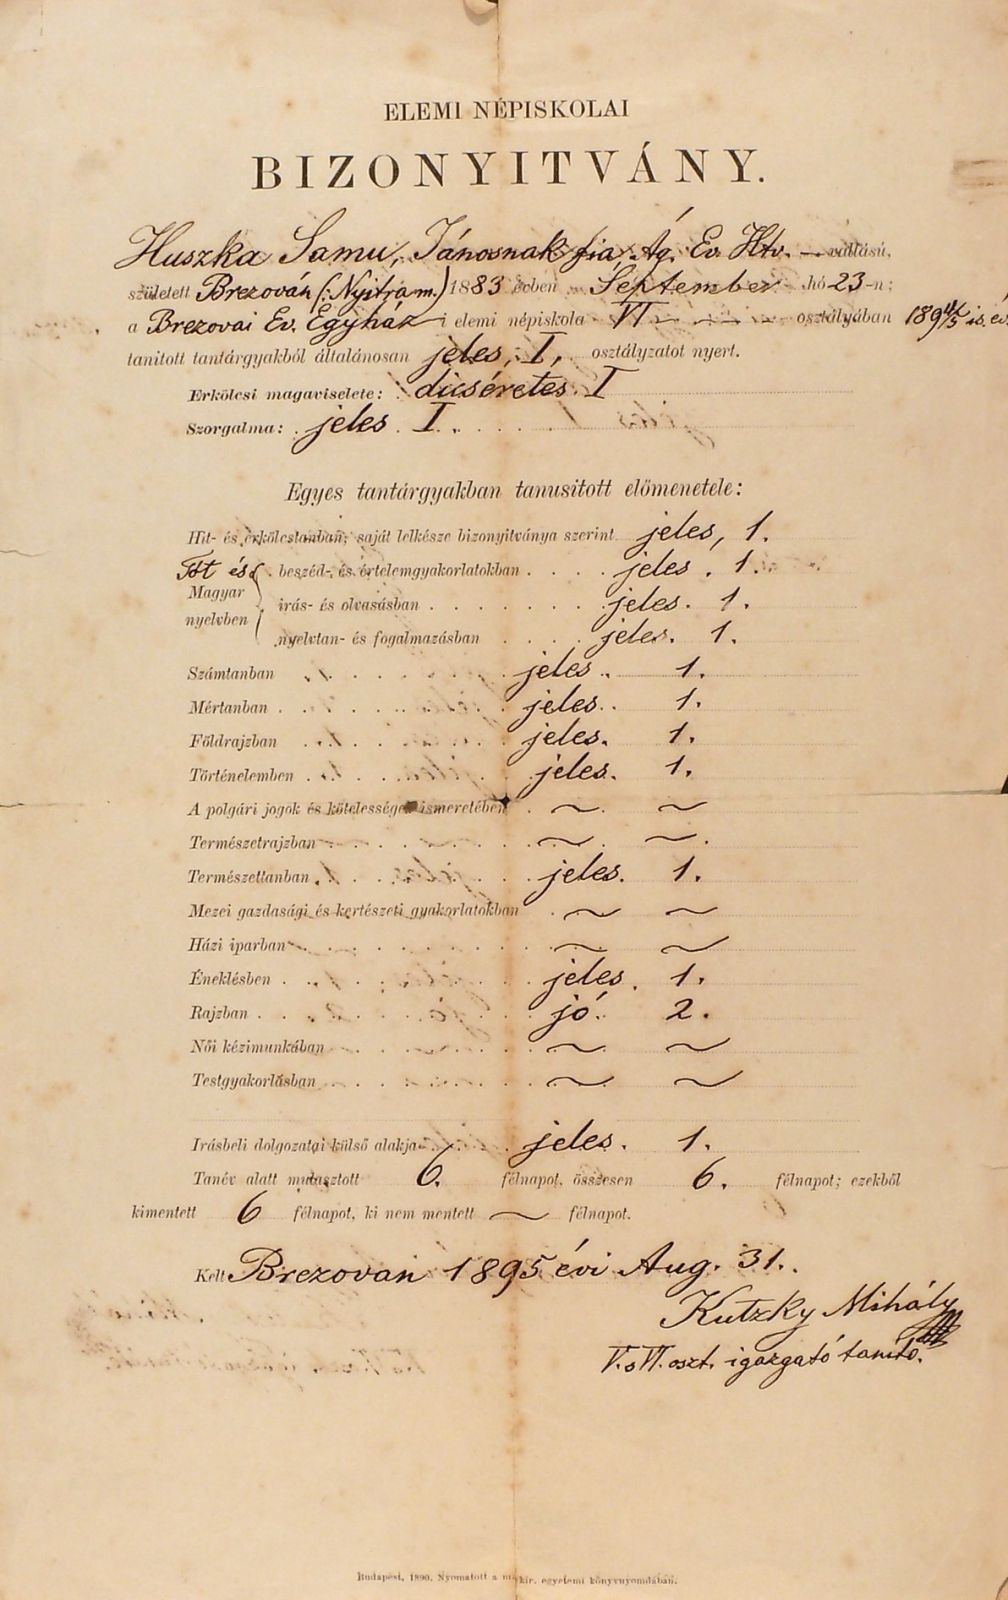 ELEMI NÉPISKOLAI
BIZONYITVÁNY.
Huszka Samu, Jánosnak fia Ág. Ev. Htv. vallású,
született Brezován (: Nyitra m.) 1883 évben September hó 23-n;
a Brezovai Ev. Egyház i elemi népiskola VI osztályában 1894/5 is. év
tanitott tantárgyakból általánosan jeles, I, osztályzatot nyert.
Erkölcsi magaviselete: dicséretes I
Szorgalma: jeles I.
Egyes tantárgyakban tanusitott előmenetele:
Hit- és erkölcstanban; saját lelkésze bizonyitványa szerint jeles, 1.
Tót és beszéd- és értelemgyakorlatokban jeles. 1.
Magyar nyelvben irás- és olvasásban jeles. 1.
nyelvtan- és fogalmazásban jeles. 1.
Számtanban jeles. 1.
Mértanban jeles. 1.
Földrajzban jeles. 1.
Történelemben jeles. 1.
A polgári jogok és kötelességek ismeretében ~ ~
Természetrajzban ~ ~
Természettanban jeles. 1.
Mezei gazdasági és kertészeti gyakorlatokban ~ ~
Házi iparban ~ ~
Éneklésben jeles. 1.
Rajzban jó. 2.
Női kézimunkában ~ ~
Testgyakorlásban ~ ~
Irásbeli dolgozatai külső alakja jeles. 1.
Tanév alatt mulasztott 6. félnapot, összesen 6. félnapot; ezekből
kimentett 6 félnapot, ki nem mentett ~ félnapot.
Kelt Brezován 1895 évi Aug. 31.
Kutzky Mihály
V. s VI. oszt. igazgató tanító.
Budapest, 1890. Nyomatott a m. kir. egyetemi könyvnyomdában.